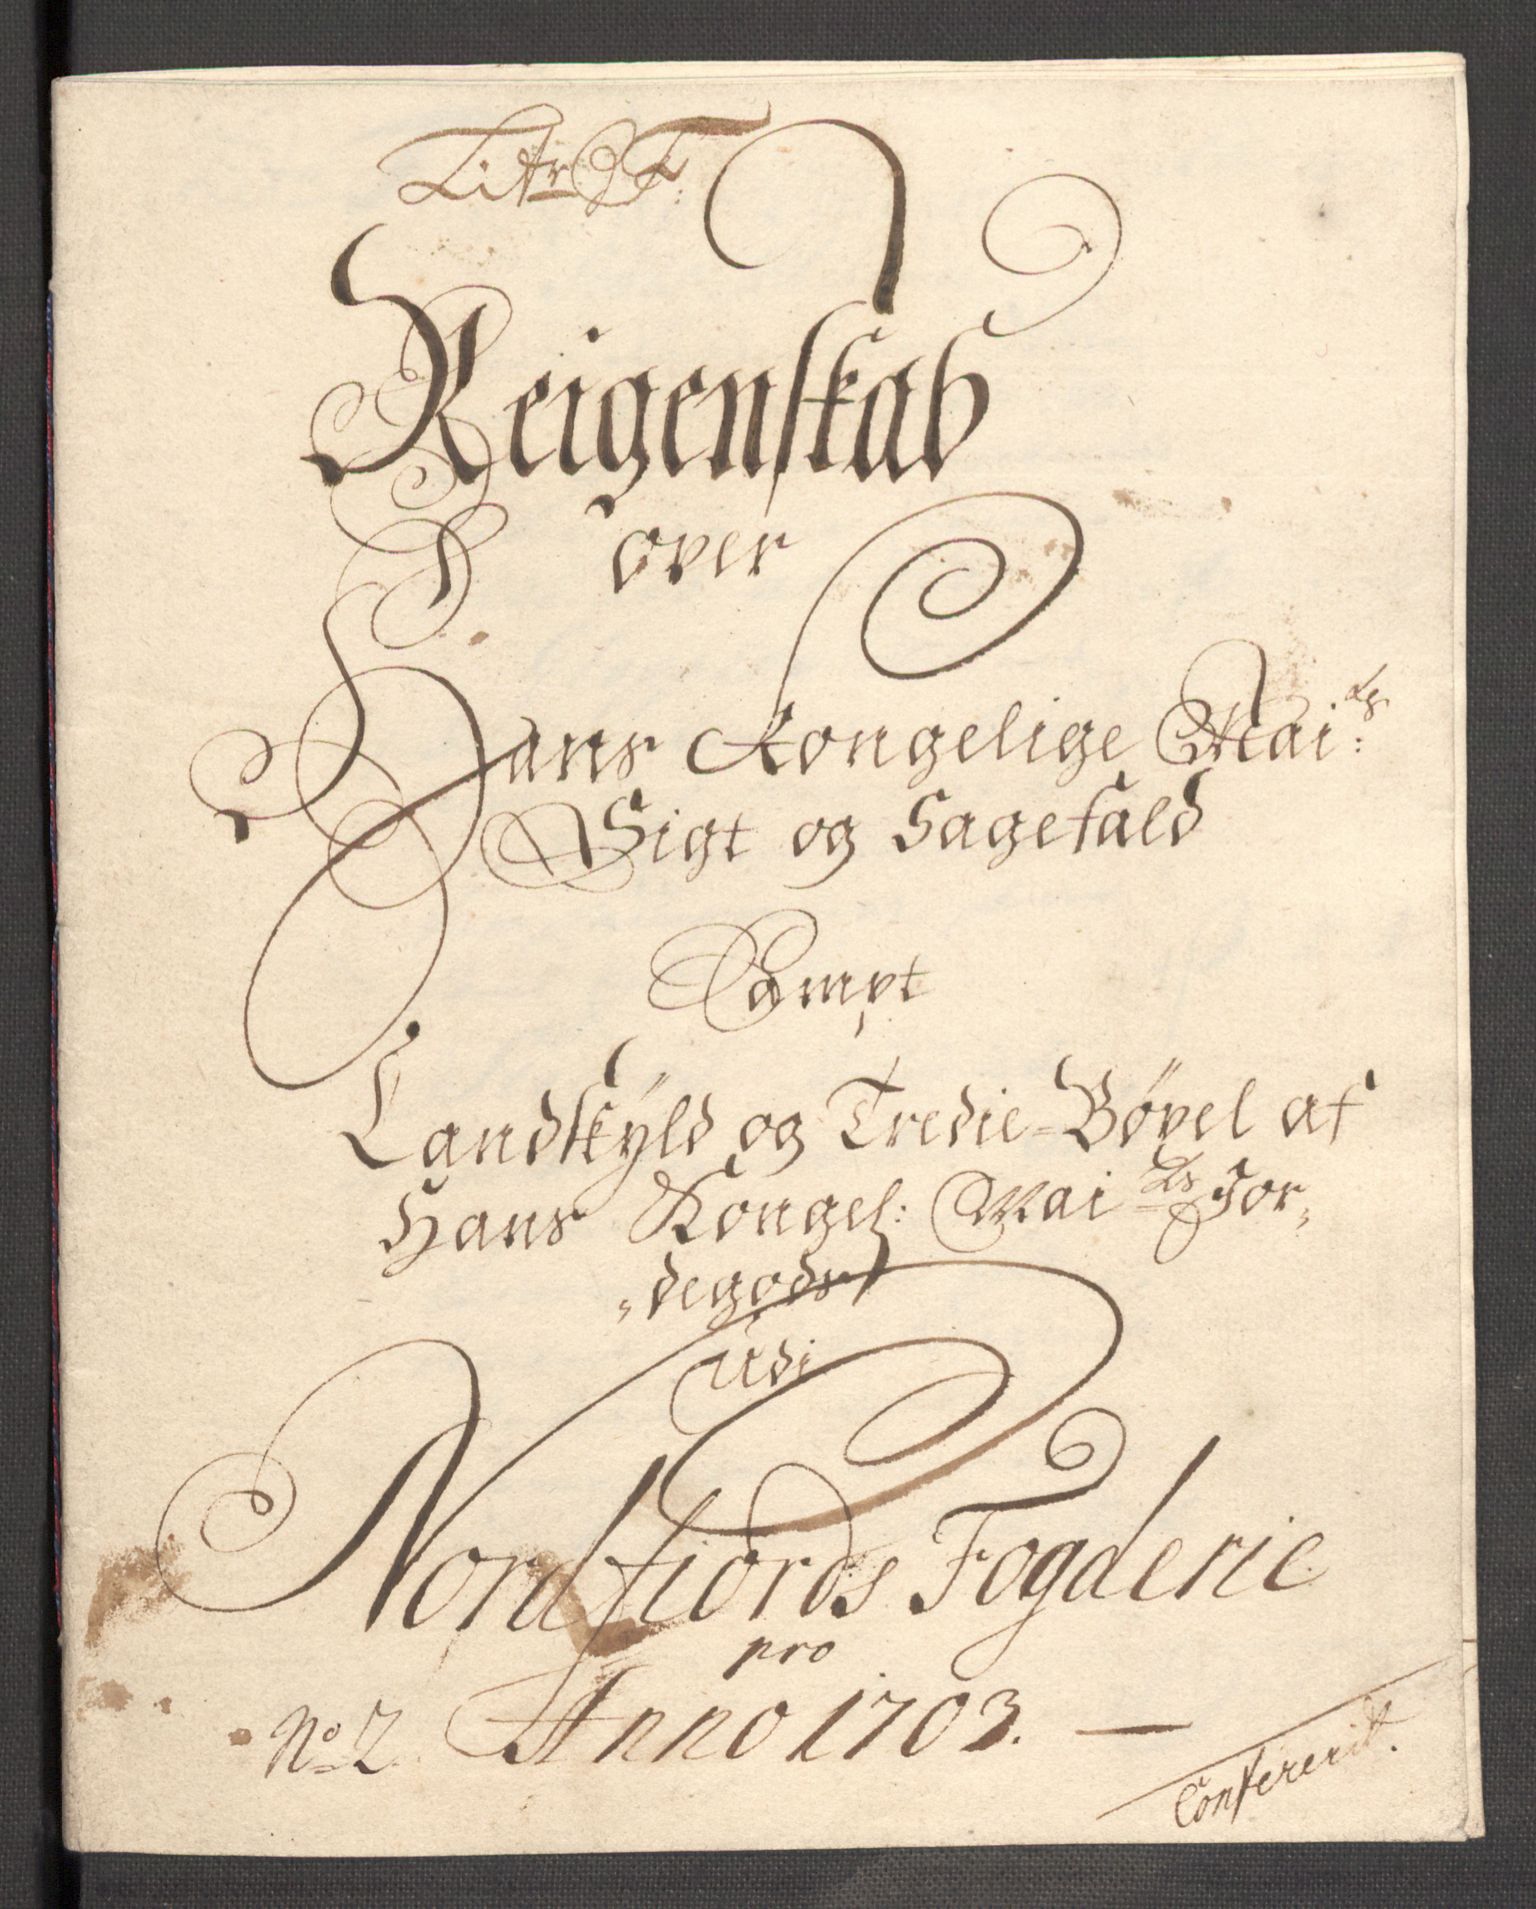 Litr F:
Reigenskab
over
Hans Kongelige Mai:ts
Sigt og Sagefald
Sampt
Landskÿld og Tredie-Bøxel af
Hans Kongel: Mai ts Jor„
„degods
Udi
Nordfiords Fogderie
pro
No 2. Anno 1703. —
Confererit.